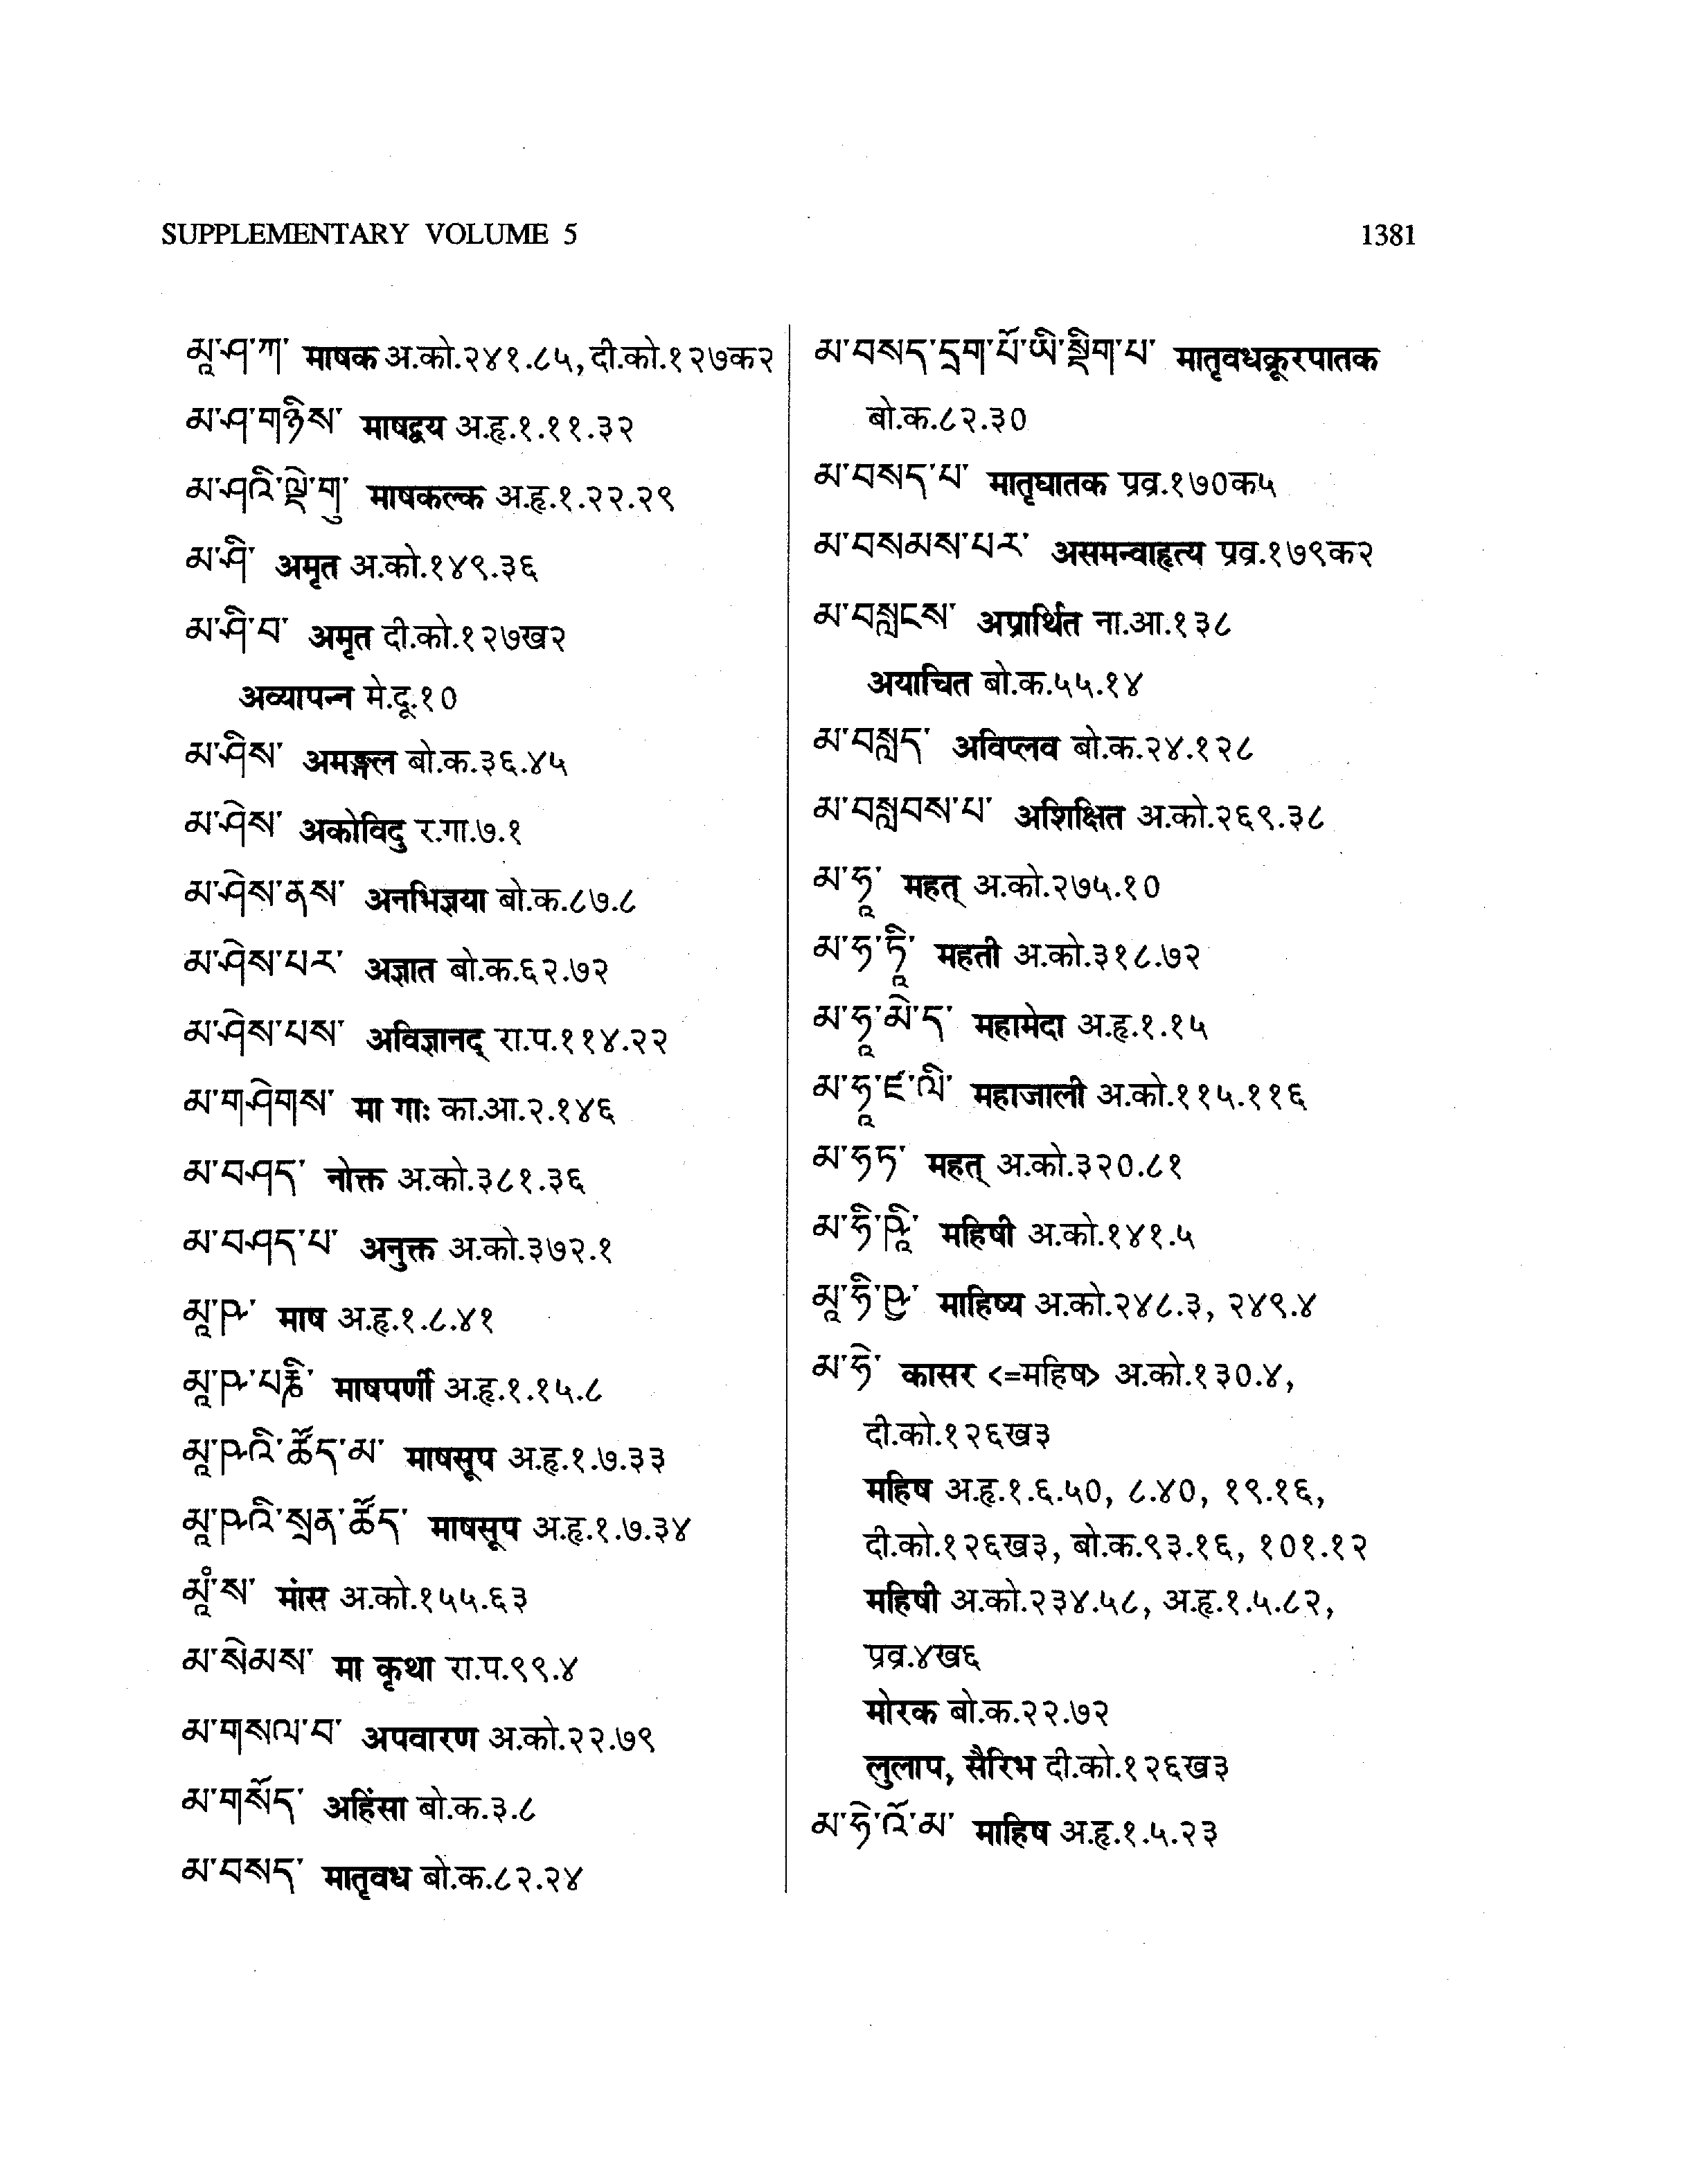 SUPPLEMENTARY VOLUME 5
1381
མཱ་ཤ་ཀ་ माषक अ.को.२४१.८५, दी.को.१२७क२
མ་ཤ་གཉིས་ माषद्वय अ.हृ.१.११.३२
མ་ཤའི་ལྡེ་གུ་ माषकल्क अ.हृ.१.२२.२९
མ་ཤི་ अमृत अ.को.१४९.३६
མ་ཤི་བ་ अमृत दी.को.१२७ख२
अव्यापन्न मे.दू.१०
མ་ཤིས་ अमङ्गल बो.क.३६.४५
མ་ཤེས་ अकोविदु र.गा.७.१
མ་ཤེས་ནས་ अनभिज्ञया बो.क.८७.८
མ་ཤེས་པར་ अज्ञात बो.क.६२.७२
མ་ཤེས་པས་ अविज्ञानद् रा.प.११४.२२
མ་གཤེགས་ मा गाः का.आ.२.१४६
མ་བཤད་ नोक्त अ.को.३८१.३६
མ་བཤད་པ་ अनुक्त अ.को.३७२.१
མཱ་ཥ་ माष अ.हृ.१.८.४१
མཱ་ཥ་པརྞི་ माषपर्णी अ.हृ.१.१५.८
མཱ་ཥའི་ཚོད་མ་ माषसूप अ.हृ.१.७.३३
མཱ་ཥའི་སྲན་ཚོད་ माषसूप अ.हृ.१.७.३४
མཱཾ་ས་ मांस अ.को.१५५.६३
མ་སེམས་ मा कृथा रा.प.९९.४
མ་གསལ་བ་ अपवारण अ.को.२२.७९
མ་གསོད་ अहिंसा बो.क.३.८
མ་བསད་ मातृवध बो.क.८२.२४
མ་བསད་དྲག་པོ་ཡི་སྡིག་པ་ मातृवधक्रूरपातक
बो.क.८२.३०
མ་བསད་པ་ मातृघातक प्रव्र.१७०क५
མ་བསམས་པར་ असमन्वाहृत्य प्रव्र.१७९क२
མ་བསླངས་ अप्रार्थित ना.आ.१३८
अयाचित बो.क.५५.१४
མ་བསླད་ अविप्लव बो.क.२४.१२८
མ་བསླབས་པ་ अशिक्षित अ.को.२६९.३८
མ་ཧཱ་ महत् अ.को.२७५.१०
མ་ཧ་ཏཱི་ महती अ.को.३१८.७२
མ་ཧཱ་མེ་ད་ महामेदा अ.हृ.१.१५
མ་ཧཱ་ཛ་ལི་ महाजाली अ.को.११५.११६
མ་ཧཏ་ महत् अ.को.३२०.८१
མ་ཧི་ཥཱི་ महिषी अ.को.१४१.५
མཱ་ཧི་ཥྱ་ माहिष्य अ.को.२४८.३, २४९.४
མ་ཧེ་ कासर <=महिष> अ.को.१३०.४,
दी.को.१२६ख३
महिष अ.हृ.१.६.५०, ८.४०, १९.१६,
दी.को.१२६ख३, बो.क.९३.१६, १०१.१२
महिषी अ.को.२३४.५८, अ.हृ.१.५.८२,
प्रव्र.४ख६
मोरक बो.क.२२.७२
लुलाप, सैरिभ दी.को.१२६ख३
མ་ཧེ་འོ་མ་ माहिष अ.हृ.१.५.२३